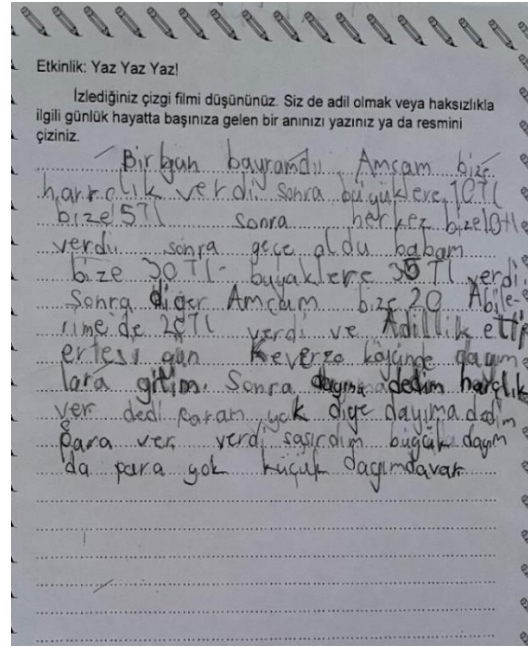 Etkinlik: Yaz Yaz Yaz!
İzlediğiniz çizgi filmi düşününüz. Siz de adil olmak veya haksızlıkla
ilgili günlük hayatta başınıza gelen bir anınızı yazınız ya da resmini
çiziniz.
Bir gün bayramdı. Amcam bize
harçlık verdi. Sonra büyüklere 10TL
bize 5TL sonra herkez bize 10TL
verdi. sonra gece oldu babam
bize 30 TL- büyüklere 35 TL verdi.
Sonra diğer Amcam bize 20 Abile-
rime de 20TL verdi ve Adillik etti
ertesi gün köyünde dayım-
lara gitim. Sonra dayıma dedim harçlık
ver dedi param yok diğe dayıma dedim
para ver verdi şaşırdım büyük dayım
da para yok küçük dayımdavar